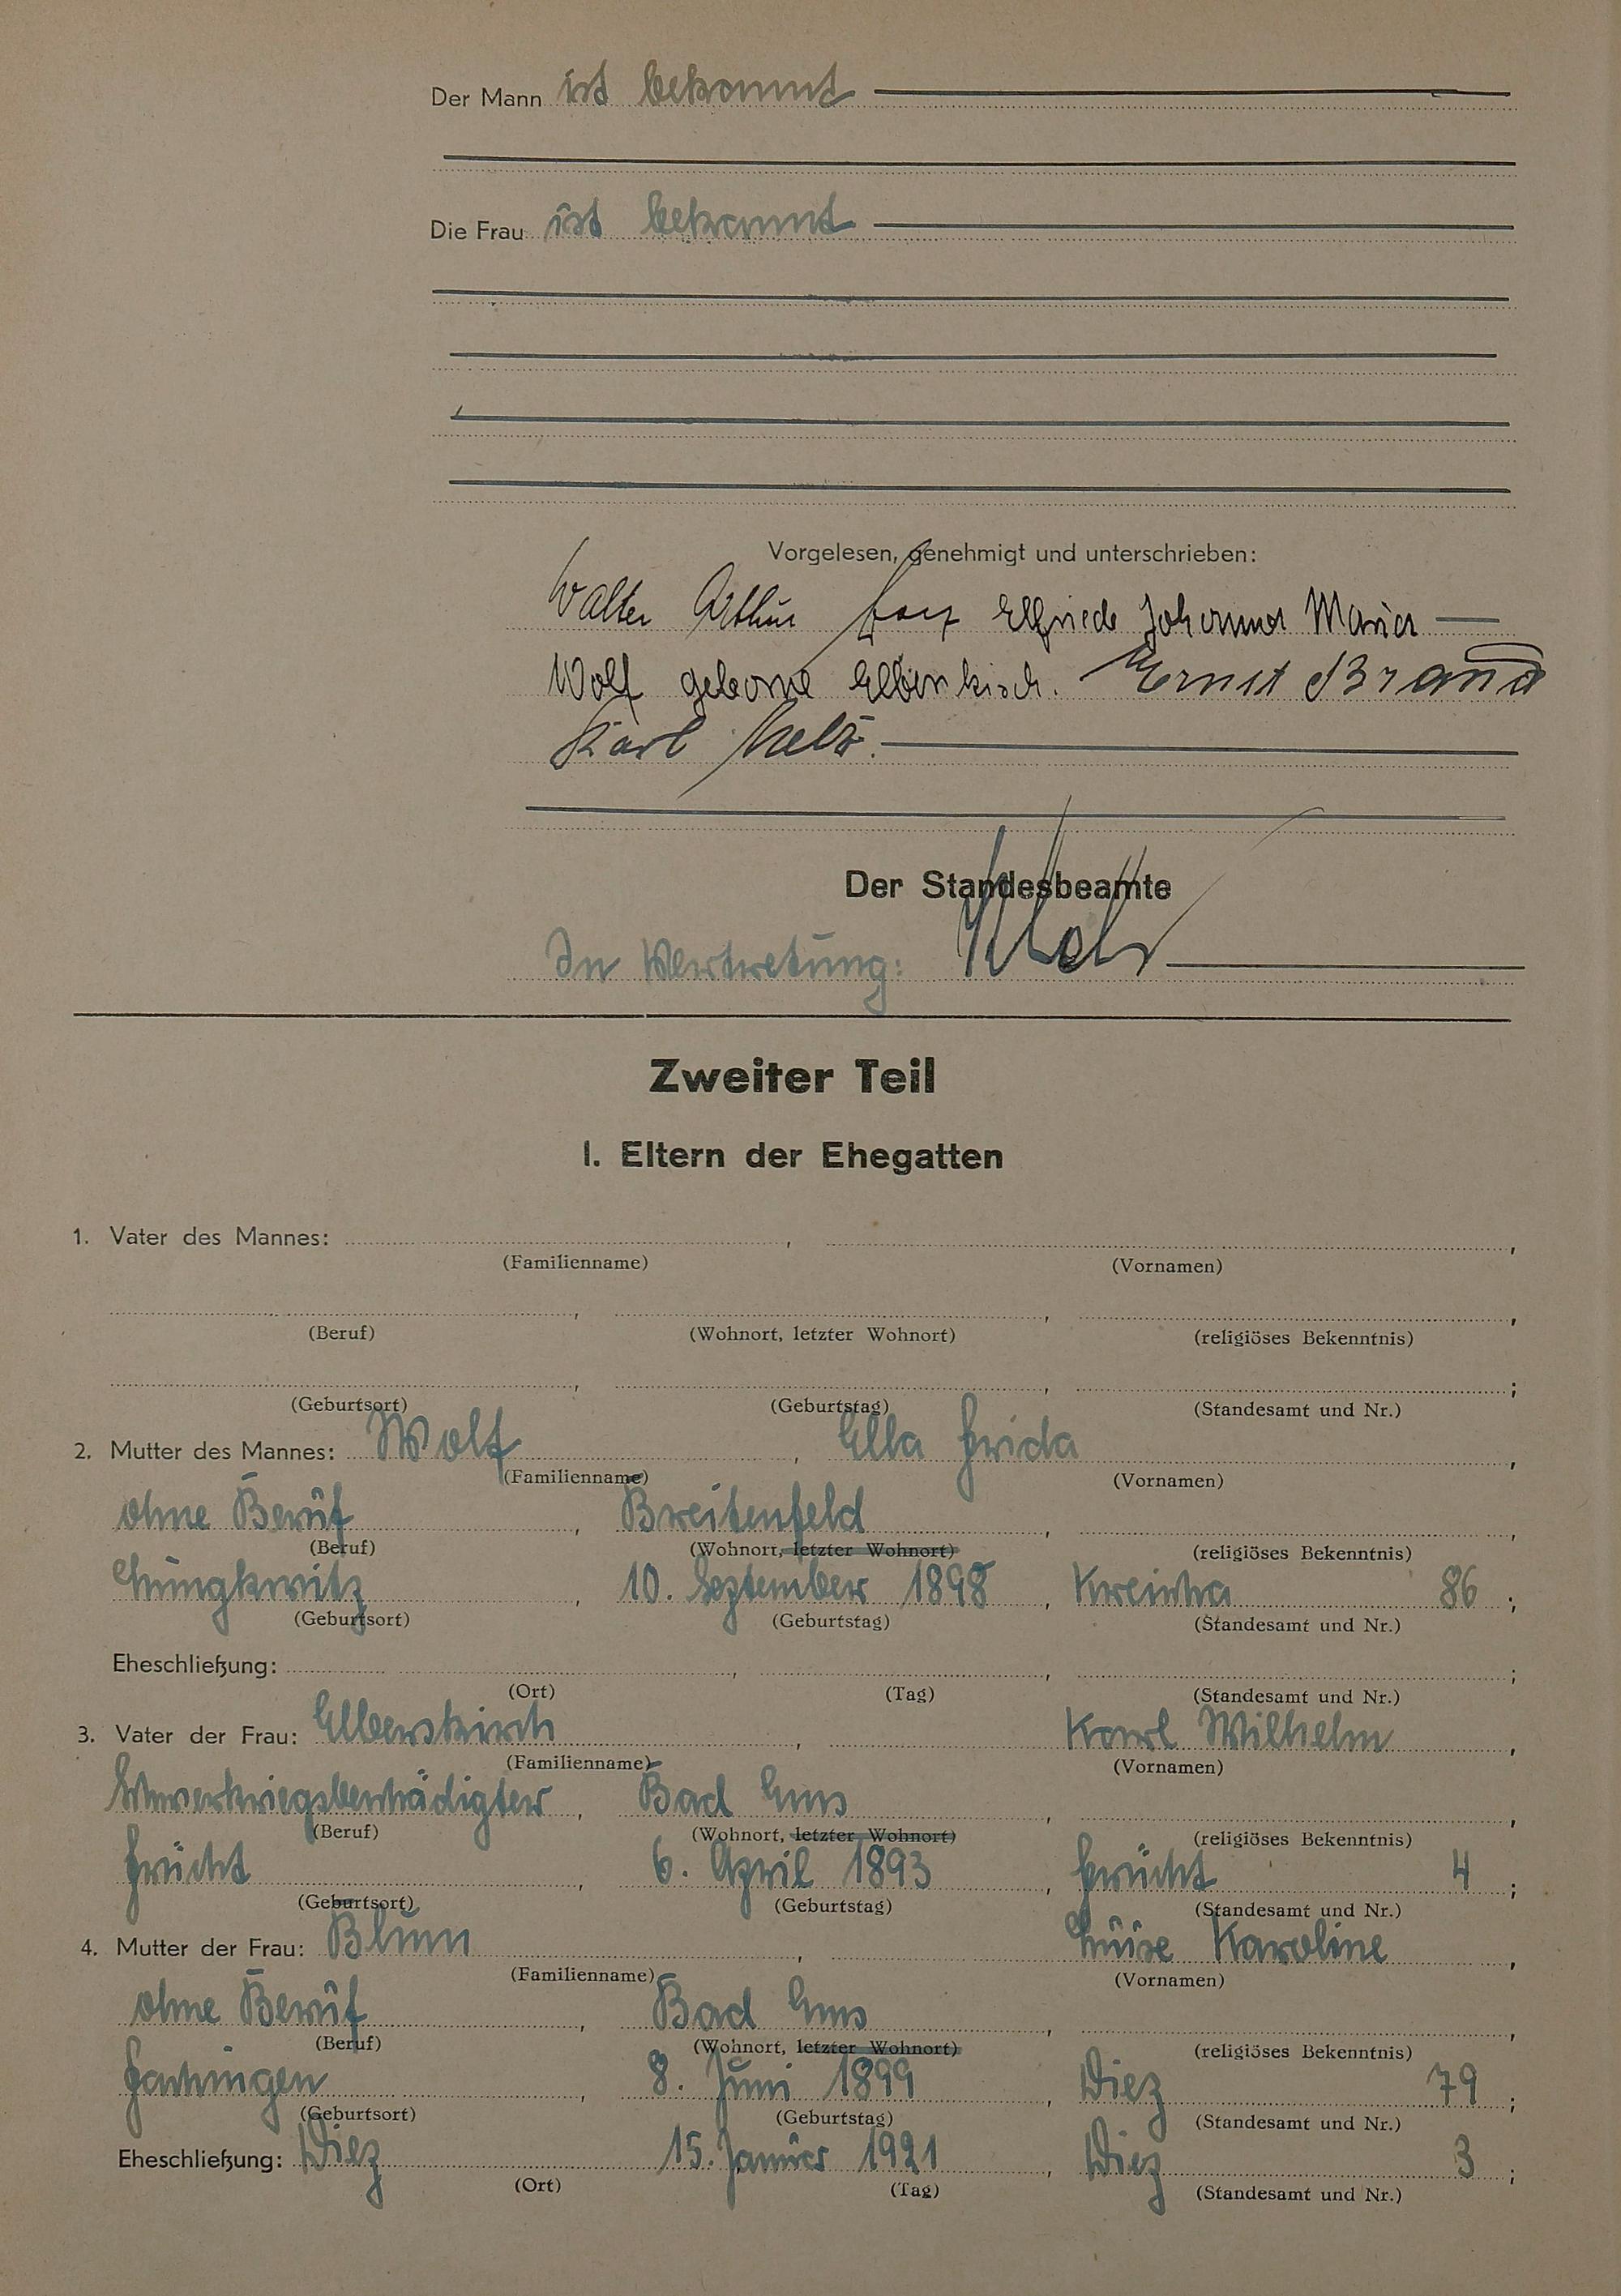 Der Mann ist bekannt
Die Frau ist bekannt
Vorgelesen, genehmigt und unterschrieben:
Walter Arthur Elfriede Johanna Maria
Wolf geborne Elberskirch. Ernst Brand
Karl
Der Standesbeamte
In Vertretung:
Zweiter Teil
I. Eltern der Ehegatten
1. Vater des Mannes: , ,
(Familienname) (Vornamen)
, , ,
(Beruf) (Wohnort, letzter Wohnort) (religiöses Bekenntnis)
, , ;
(Geburtsort) (Geburtstag) (Standesamt und Nr.)
2. Mutter des Mannes: Wolf , Ella Frida ,
(Familienname) (Vornamen)
ohne Beruf , Breitenfeld , ,
(Beruf) (Wohnort, letzter Wohnort) (religiöses Bekenntnis)
Lungkwitz , 10. September 1898 , Kreischa 86 ;
(Geburtsort) (Geburtstag) (Standesamt und Nr.)
Eheschließung: , , ;
(Ort) (Tag) (Standesamt und Nr.)
3. Vater der Frau: Elberskirch , Karl Wilhelm ,
(Familienname) (Vornamen)
Schwerkriegsbeschädigter , Bad Ems , ,
(Beruf) (Wohnort, letzter Wohnort) (religiöses Bekenntnis)
Frücht , 6. April 1893 , Frücht 4 ;
(Geburtsort) (Geburtstag) (Standesamt und Nr.)
4. Mutter der Frau: Blum , Luise Karoline ,
(Familienname) (Vornamen)
ohne Beruf , Bad Ems , ,
(Beruf) (Wohnort, letzter Wohnort) (religiöses Bekenntnis)
Fachingen , 8. Juni 1899 , Diez 79 ;
(Geburtsort) (Geburtstag) (Standesamt und Nr.)
Eheschließung: Diez 15. Januar 1921 , Diez 3 ;
(Ort) (Tag) (Standesamt und Nr.)